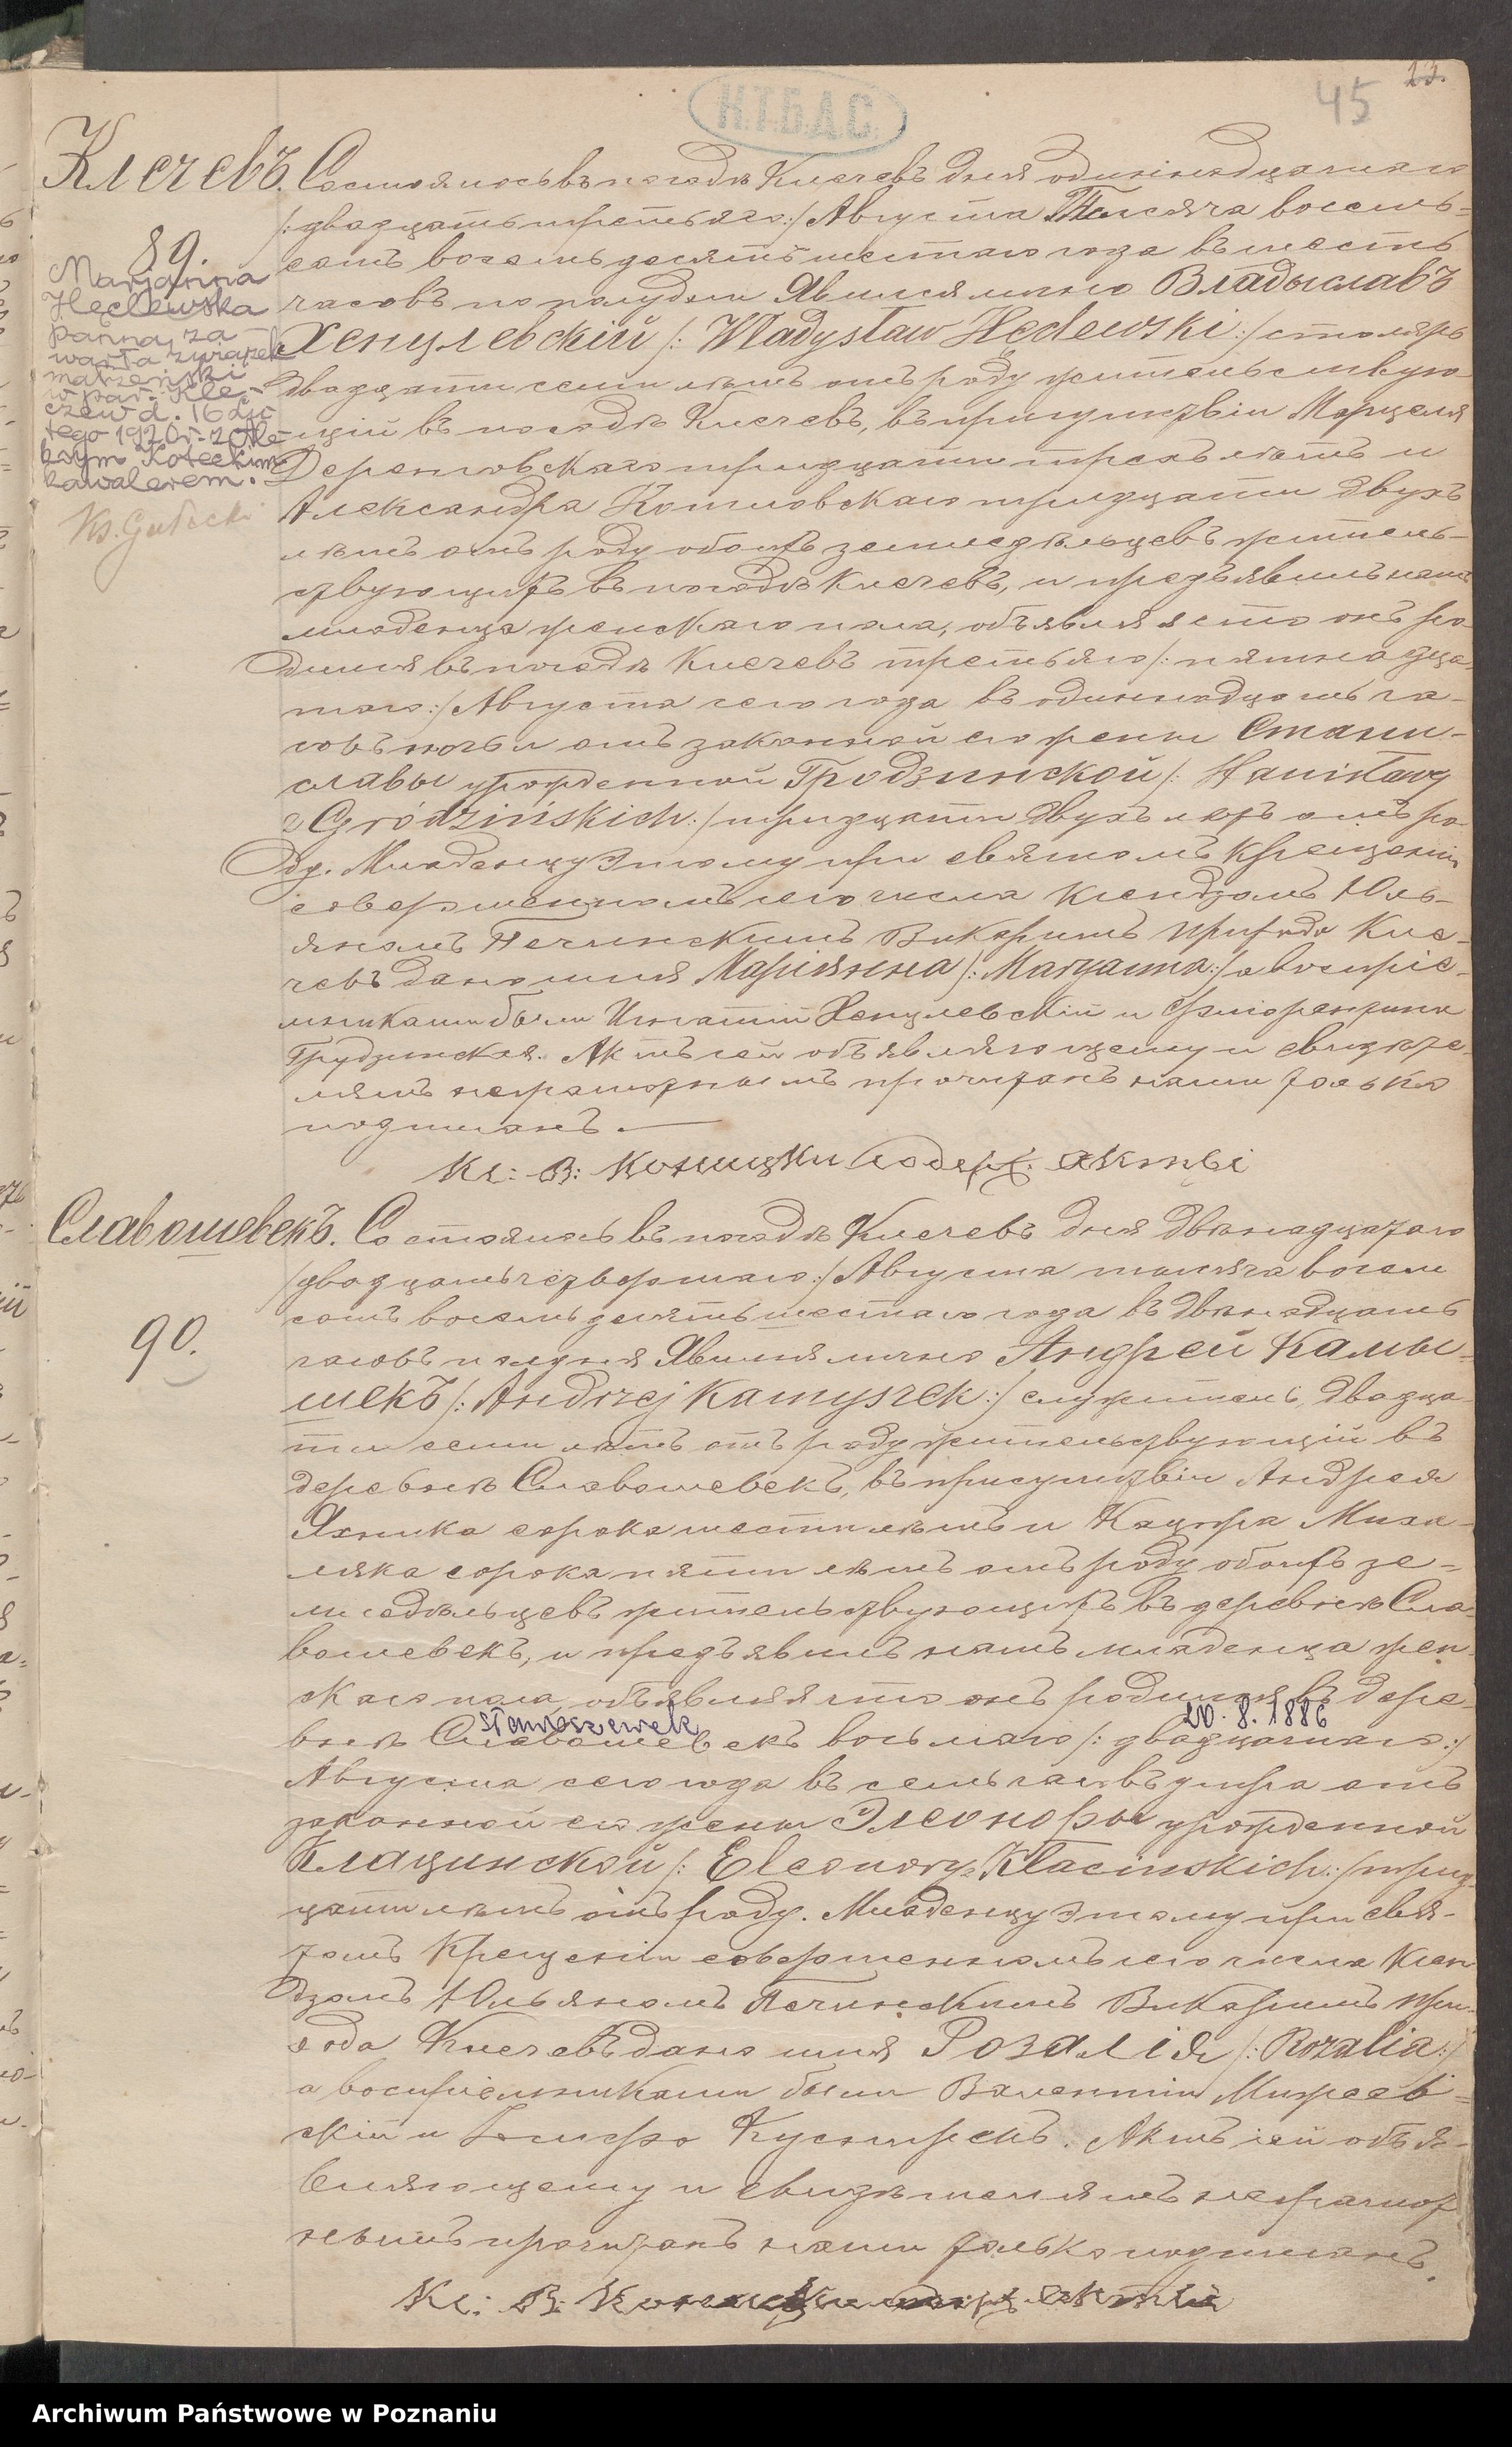 45
23.
Н.Т.Б.А.С.
Клечевъ. Состоялось въ посадѣ Клечевъ дня одиннадцатаго
/: двадцать третьяго :/ Августа Тысяча восемь-
сотъ восемьдесятъ шестаго года въ шесть
часовъ по полудни Явился лично Владыславъ
Хенцлевскій /: Władysław Hęclewski :/ столяръ
двадцати семи лѣтъ отъ роду жительствую-
щій въ посадѣ Клечевъ, въ присутствіи Марцеля
тридцати трехъ лѣтъ и
Александра тридцати двухъ
лѣтъ отъ роду обоихъ земледѣльцевъ житель-
ствующихъ въ посадѣ Клечевъ, и предъявилъ намъ
младенца женскаго пола, объявляя что онъ ро-
дился въ посадѣ Клечевъ третьяго /: пятнадца-
таго :/ Августа сего года въ одиннадцать ча-
совъ ночьи отъ законной его жены Стани-
славы урожденной Гродзинской /: Stanisławy
z Grodzińskich :/ тридцати двухъ лѣтъ отъ ро-
ду. Младенцу этому при святомъ крещеніи
совершенномъ сего числа Ксендзомъ Юль-
яномъ Печинскимъ Викаримъ прихода Кле-
чевъ дано имя Маріянна /: Maryanna :/ а воспріе-
мниками были Игнатій Хенцлевскій и Флюрентина
Грудзинская. Актъ сей объявляющему и свидѣте-
лямъ неграмотнымъ прочитанъ нами только
подписанъ.
Кс: В: содерж. акты
89.
Marjanna
Hęclewska
panna, za
warła związek
małżeński
w par. Kle-
czew d. 16 Lu
tego 1920 r. z
Koteckim
kawalerem.
Ks. Gułecki
Славошевекъ. Состоялось въ посадѣ Клечевъ дня двѣнадцатаго
/: двадцать четвертаго :/ Августа тысяча восемь
сотъ восемьдесятъ шестаго года въ двѣнадцать
часовъ полудня Явился лично Андрей Камы-
шекъ /: Andrzej Kamyszek :/ служитель, двадца-
ти семи лѣтъ отъ роду жительствующій въ
деревнѣ Славошевекъ, въ присутствіи Андрея
Яхника сорока шести лѣтъ и Каспра Миха-
ляка сорока пяти лѣтъ отъ роду обоихъ зе-
мледѣльцевъ жительствующихъ въ деревнѣ Сла-
вошевекъ, и предъявилъ намъ младенца жен-
скаго пола, объявляя что онъ родился въ дере-
Sławoszewek 20.8.1886
внѣ Славошевекъ восьмаго /: двадцатаго :/
Августа сего года въ семь часовъ утра отъ
законной его жены Элеоноры урожденной
Клацинской /: Eleonory z Kłacińskich :/ трид-
цати лѣтъ отъ роду. Младенцу этому при свя-
томъ Крещеніи совершенномъ сего числа Ксен
дзомъ Юльяномъ Печинскимъ Викаримъ при-
хода Клечевъ дано имя Розалія /: Rozalia :/
а воспріемниками были Валентій
скій и Актъ сей объя-
вляющему и свидѣтелямъ неграмот
нымъ прочитанъ нами только подписанъ.
Кс: В: акты
90.
Archiwum Państwowe w Poznaniu